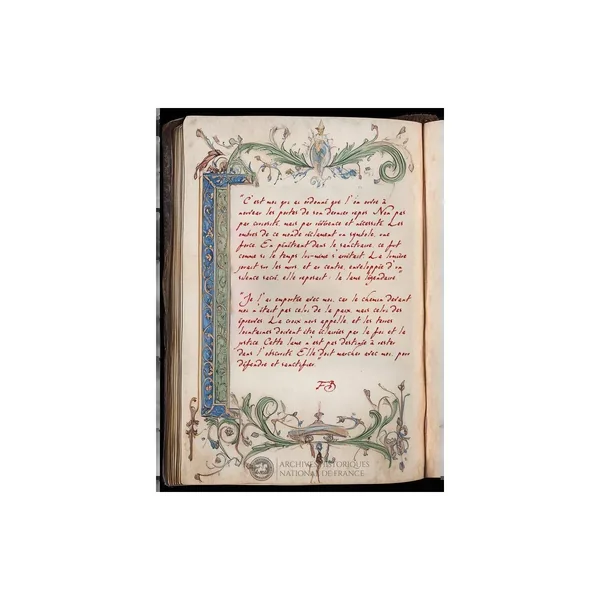 "C'est moi qui ai ordonné que l'on ouvre à
nouveau les portes de son dernier repos. Non pas
par curiosité, mais par révérence et nécessité. Les
ombres de ce monde réclament un symbole, une
force. En pénétrant dans le sanctuaire, ce fut
comme si le temps lui-même s'arrêtait. La lumière
jouait sur les murs et au centre, enveloppée d'un
silence sacré, elle reposait : la lame légendaire."
"Je l'ai emportée avec moi, car le chemin devant
moi n'était pas celui de la paix, mais celui des
épreuves. La croix nous appelle, et les terres
lointaines doivent être éclairées par la foi et la
justice. Cette lame n'est pas destinée à rester
dans l'obscurité. Elle doit marcher avec moi, pour
défendre et sanctifier.
ARCHIVES HISTORIQUES
NATIONAL DE FRANCE